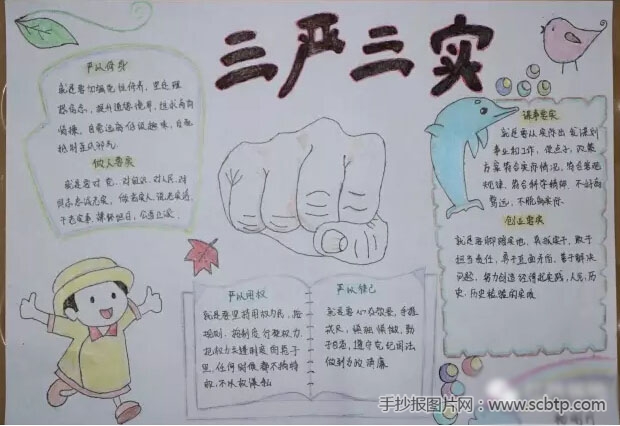 三严三实
严以修身
就是要加强党性修养，坚定理
想信念，提升道德境界，追求高尚
情操，自觉远离低级趣味，自觉
抵制歪风邪气
做人要实
就是要对党、对组织、对人民、对
同志忠诚老实，做老实人、说老实话、
干老实事，襟怀坦白，公道正派。
谋事要实
就是要从实际出发谋划
事业和工作，使点子、政策、
方案符合实际情况、符合客观
规律、符合科学精神，不好高
骛远，不脱离实际
创业要实
就是要脚踏实地、真抓实干，敢于
担当责任，勇于直面矛盾，善于解决
问题，努力创造经得起实践、人民、历
史
严以用权
就是要坚持用权为民，按
规则、按制度行使权力，
把权力关进制度的笼子
里，任何时候都不搞特
权、不以权谋私
严以律己
就是要心存敬畏、手握
戒尺，慎独慎微、勤
于自省，遵守党纪国法，
做到为政清廉
手抄报图片网：www.scbtp.com